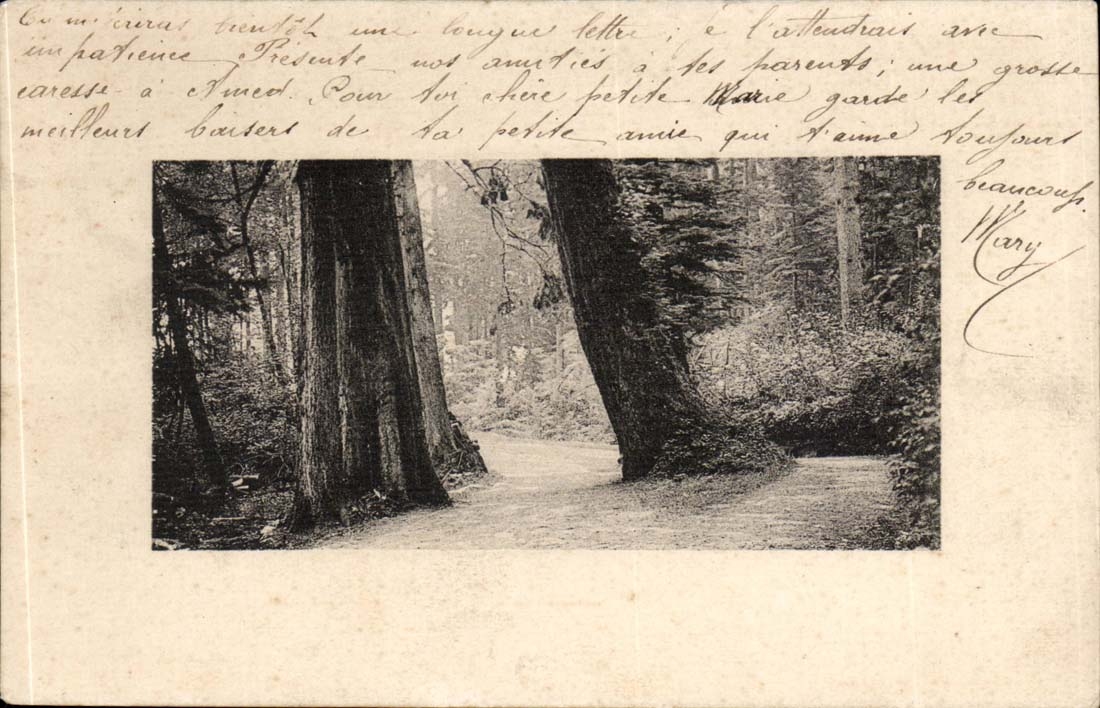 Tu m'écriras bientôt une longue lettre ; è l'attendrais avec
impatience. Présente nos amitiés à tes parents ; une grosse
caresse à Amed. Pour toi chère petite Marie garde les
meilleurs baisers de ta petite amie qui t'aime toujours
beaucoup.
Mary